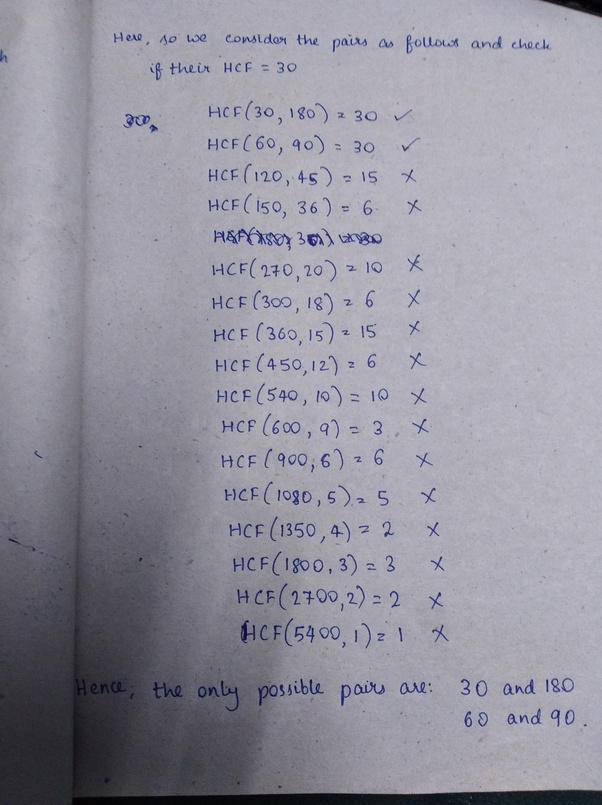 Here, so we consider the pairs as follows and check
if their HCF = 30
HCF(30, 180) = 30 ✓
HCF(60, 90) = 30 ✓
HCF(120, 45) = 15 ×
HCF(150, 36) = 6 ×
HCF(270, 20) = 10 ×
HCF(300, 18) = 6 ×
HCF(360, 15) = 15 ×
HCF(450, 12) = 6 ×
HCF(540, 10) = 10 ×
HCF(600, 9) = 3 ×
HCF(900, 6) = 6 ×
HCF(1080, 5) = 5 ×
HCF(1350, 4) = 2 ×
HCF(1800, 3) = 3 ×
HCF(2700, 2) = 2 ×
HCF(5400, 1) = 1 ×
Hence, the only possible pairs are: 30 and 180
60 and 90.